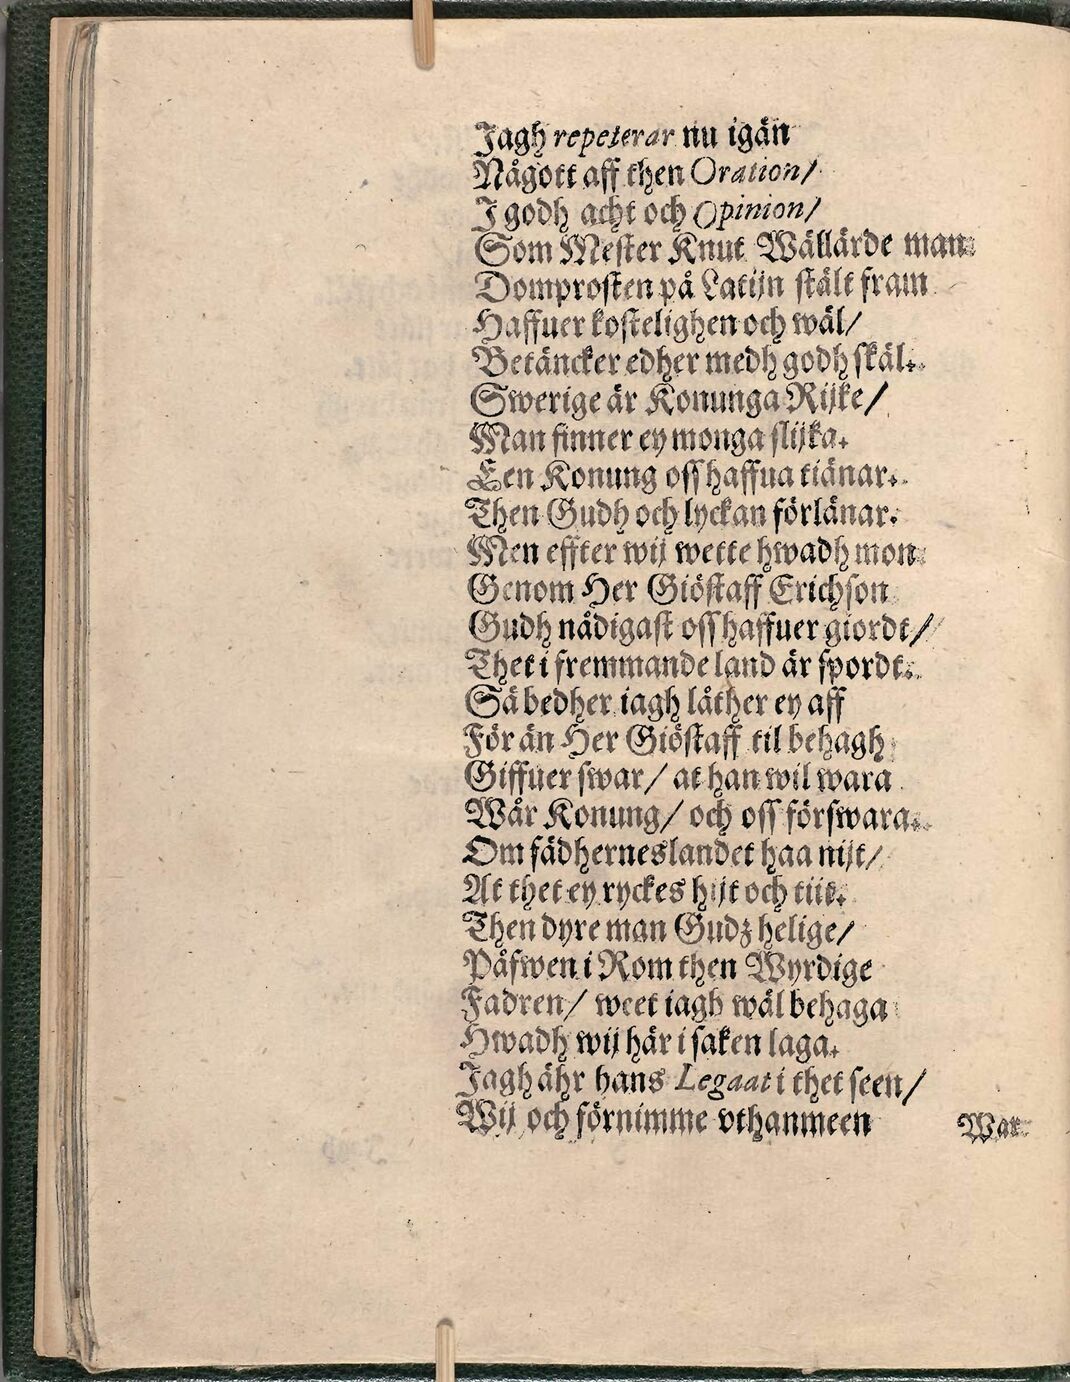 Jagh repeterar nu igän
Någott aff then Oration/
J godh acht och Opinion/
Som Mester Knut Wällärde man
Domprosten på Latijn stält fram
Haffuer kostelighen och wäl/
Betäncker edher medh godh skäl.
Swerige är Konunga Rijke/
Man finner ey monga slijka.
Een Konung oss haffua tiänar.
Then Gudh och lyckan förlänar.
Men effter wij wette hwadh mon
Genom Her Giöstaff Erichson
Gudh nådigast oss haffuer giordt/
Thet i fremmande land är spordt.
Så bedher iagh låther ey aff
För än Her Giöstaff til behagh
Giffuer swar/ at han wil wara
Wår Konung/ och oss förswara.
Om fädherneslandet haa nijt/
At thet ey ryckes hijt och tiit.
Then dyre man Gudz helige/
Påfwen i Rom then Wyrdige
Fadren/ weet iagh wäl behaga
Hwadh wij här i saken laga.
Jagh ähr hans Legaat i thet seen/
Wij och förnimme vthan meen
War